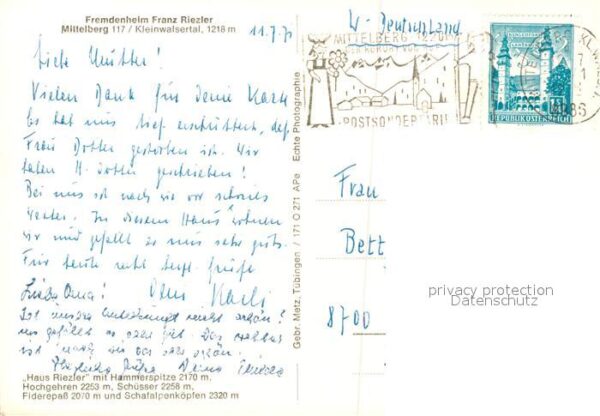 Fremdenheim Franz Riezler
Mittelberg 117 / Kleinwalsertal, 1218 m
11.7.7
W-Deutschland
MITTELBERG
POSTSONDERTARIF
REPUBLIK ÖSTERREICH
Liebe Mutter!
Vielen Dank für Deine Karte
Es hat uns tief erschüttert, daß
Frau Dotter gestorben ist. Wir
haben H. Dotter geschrieben!
Bei uns ist nach wie vor schönes
Wetter. In diesem Haus wohnen
wir und gefällt es uns sehr gut.
Für heute recht herzl. Grüße
Dein
Liebe Oma!
Ist unsere Unterkunft nicht schön?
uns gefällt es sehr gut. Das Wetter
ist nach wie vor sehr schön.
Deine
"Haus Riezler" mit Hammerspitze 2170 m,
Hochgehren 2253 m, Schüsser 2258 m,
Fiderepaß 2070 m und Schafalpenköpfen 2320 m
Gebr. Metz, Tübingen / 171 O 271 APe Echte Photographie
Frau
Bett
8700
privacy protection
Datenschutz